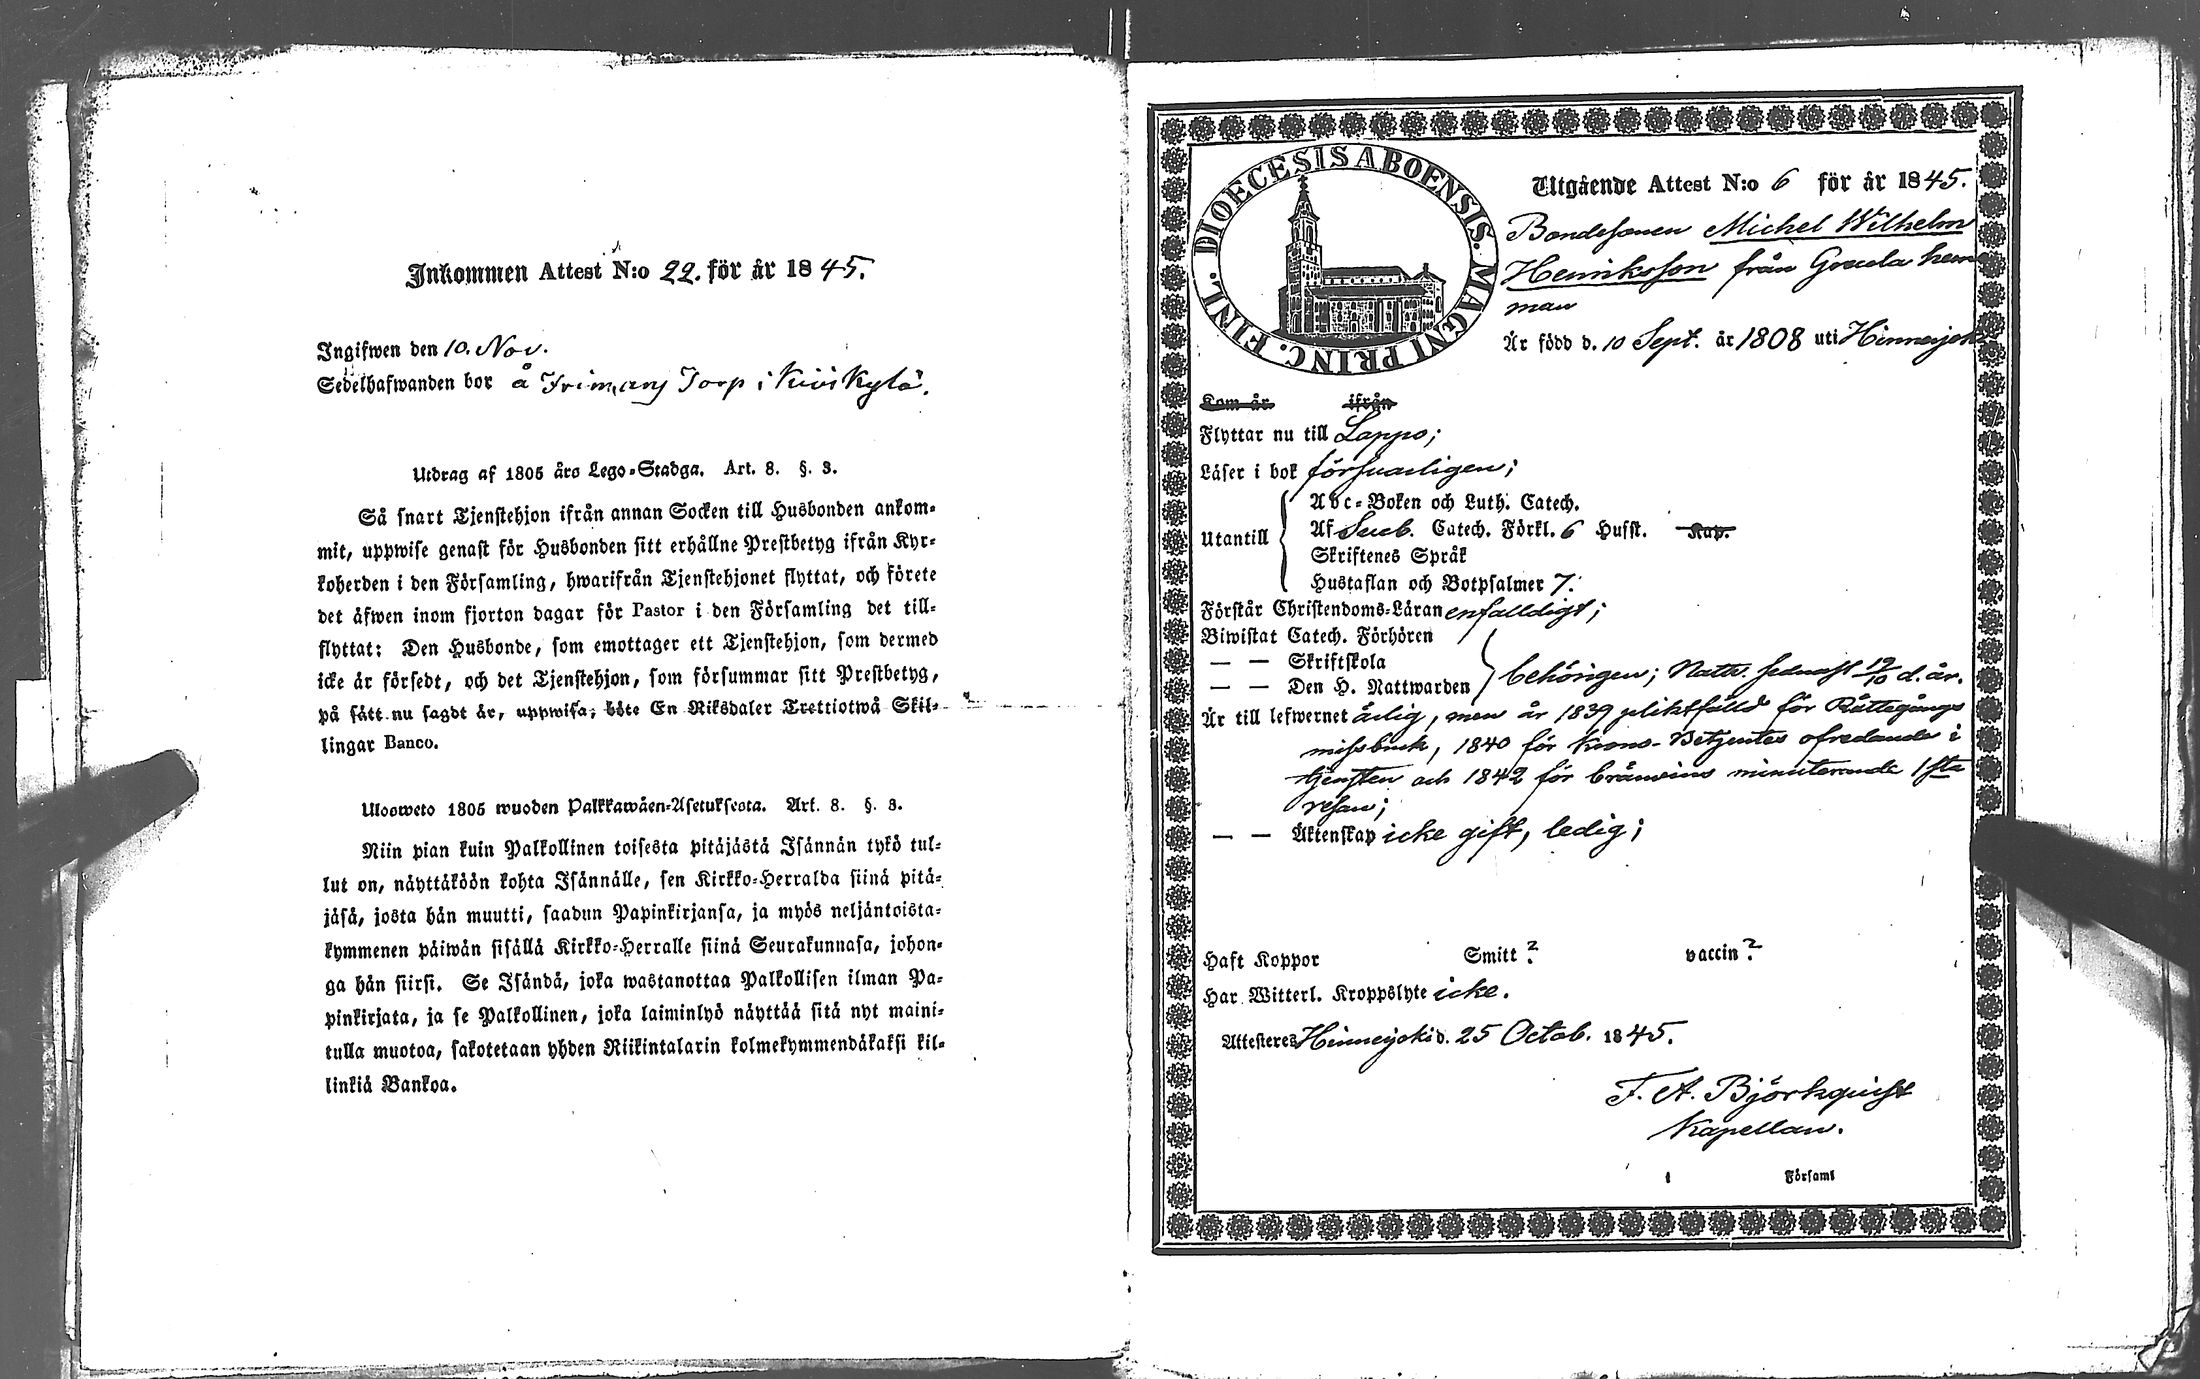 Inkommen Attest N:o 22. för år 1845.
Ingifwen den 10. Nov.
Sedelhafwanden bor å Torp i Kiviskylä.
Utdrag af 1805 års Lego-Stadga. Art. 8. §. 3.
Så snart Tjenstehjon ifrån annan Socken till Husbonden ankom-
mit, uppwise genast för Husbonden sitt erhållne Prestbetyg ifrån Kyr-
koherden i den Församling, hwarifrån Tjenstehjonet flyttat, och förete
det äfwen inom fjorton dagar för Pastor i den Församling det till-
flyttat: Den Husbonde, som emottager ett Tjenstehjon, som dermed
icke är försedt, och det Tjenstehjon, som försummar sitt Prestbetyg,
på sätt nu sagdt är, uppwisa, böte En Riksdaler Trettiotwå Skil-
lingar Banco.
Ulosweto 1805 wuoden Palkkawäen-Asetuksesta. Art. 8. §. 3.
Niin pian kuin Palkollinen toisesta pitäjästä Isännän tykö tul-
lut on, näyttäköön kohta Isännälle, sen Kirkko-Herralda siinä pitä-
jäsä, josta hän muutti, saadun Papinkirjansa, ja myös neljäntoista-
kymmenen päiwän sisällä Kirkko-Herralle siinä Seurakunnasa, johon-
ga hän siirsi. Se Isändä, joka wastanottaa Palkollisen ilman Pa-
pinkirjata, ja se Palkollinen, joka laiminlyö näyttää sitä nyt maini-
tulla muotoa, sakotetaan yhden Riikintalarin kolmekymmendäkaksi kil-
linkiä Bankoa.
FINL. DIOECESIS ABOENSIS. MAGNI PRINC.
Utgående Attest N:o 6 för år 1845.
Bondesonen Michel Wilhelm
Henriksson från Greula hem
man
Är född d. 10 Sept. år 1808 uti Hinnerjoki
Kom år ifrån
Flyttar nu till Lappo;
Läser i bok försvarligen;
Utantill
Abc-Boken och Luth. Catech.
Af Sveb. Catech. Förkl. 6 Hufst. Kap.
Skriftenes Språk
Hustaflan och Botpsalmer 7.
Förstår Christendoms-Läran enfalldigt;
Biwistat Catech. Förhören
— — Skriftskola
— — Den H. Nattwarden behörigen; Nattv. sednast 19/10 d. år.
Är till lefwernet ärlig, men år 1839 pliktfälld för Rättegångs
missbruk, 1840 för Krono-Betjentes ofredande i
tjensten och 1842 för bränvins minuterande 1sta
resan;
— — Äktenskap icke gift, ledig;
Haft Koppor Smitt? vaccin?
Har Witterl. Kroppslyte icke.
Attesteres Hinnerjoki d. 25 Octob. 1845.
F. A. Björkqvist
Kapellan.
i Församl